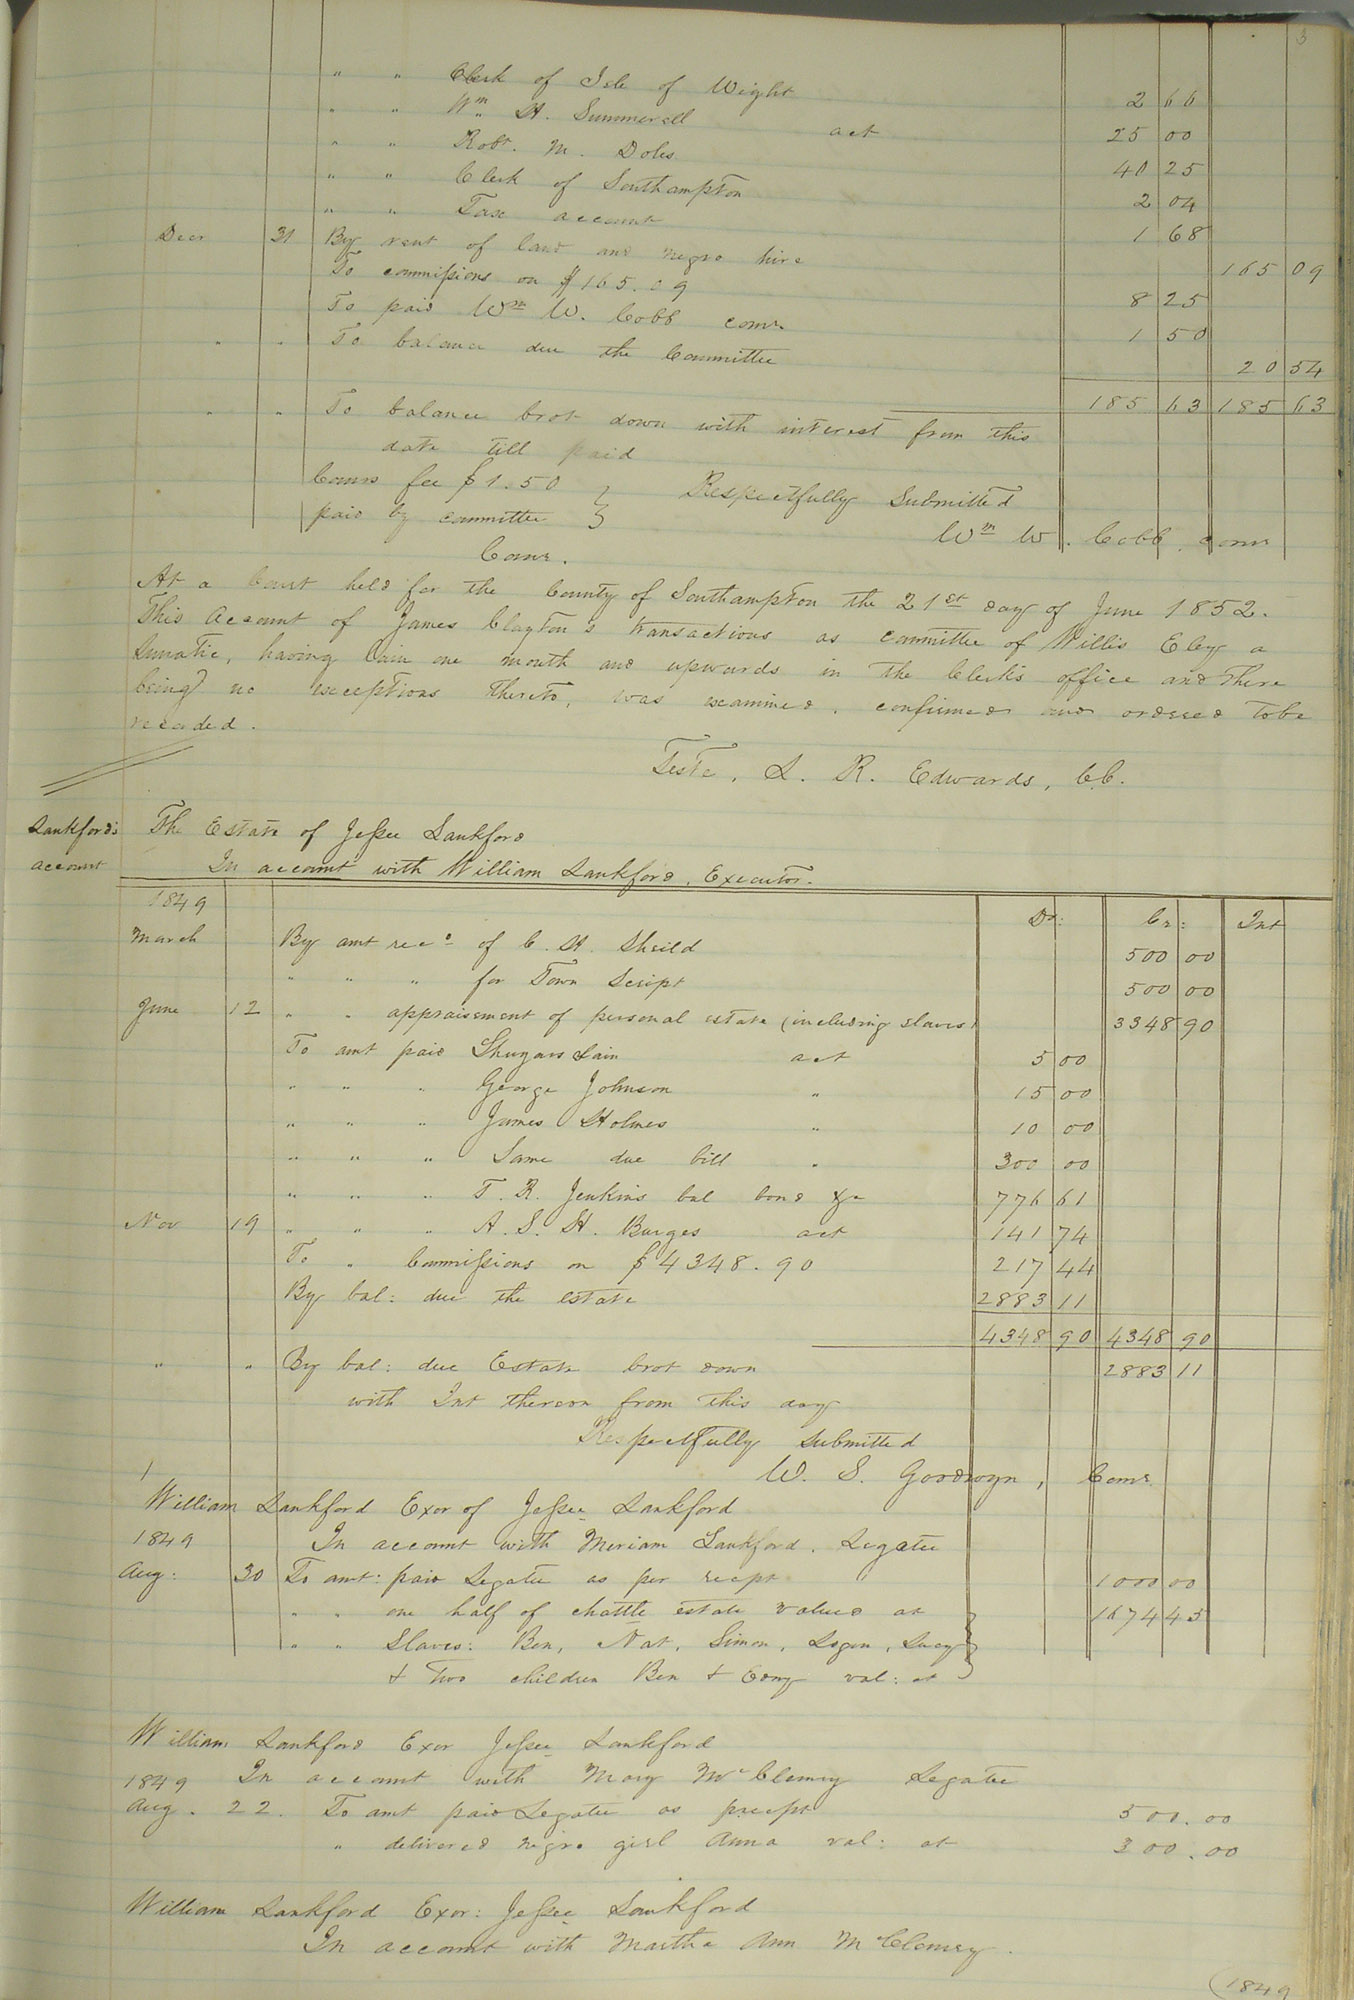 3
" " Clerk of Isle of Wight 2 66
" " Wm. H. Summerell act 25 00
" " Robt. M. Doles 40 25
" " Clerk of Southampton 2 04
" " Tax account 1 68
Decr 31 By rent of land and negro hire 165 09
To commissions on $165.09 8 25
To paid Wm W. Cobb comr. 1 50
" " To balance due the Committee 20 54
185 63 185 63
" " To balance brot down with interest from this
date till paid
Comrs fee $1.50 } Respectfully Submitted
paid by committee } Wm W. Cobb, comr
Comr.
At a Court held for the County of Southampton the 21st day of June 1852.
This Account of James Clayton's transactions as committee of Willis Eley a
lunatic, having lain one month and upwards in the Clerk's office and there
being no exceptions thereto, was examined, confirmed and ordered to be
recorded.
Teste, L. R. Edwards, CC.
Lankford's account
The Estate of Jessee Lankford
In account with William Lankford, Executor.
1849 Dr: Cr: Int
March By amt recd of C. H. Sheild 500 00
" " " for Town Script 500 00
June 12 " " appraisement of personal estate (including slaves) 3348 90
To amt paid Shugars Lain act 5 00
" " " George Johnson " 15 00
" " " James Holmes " 10 00
" " " Same due bill " 300 00
" " " T. R. Jenkins bal bond &c 776 61
Nov 19 " " " A. S. H. Burges act 141 74
To " Commissions on $4348.90 217 44
By bal: due the estate 2883 11
4348 90 4348 90
" " By bal: due Estate brot down 2883 11
with Int thereon from this day
Respectfully submitted
W. S. Goodwyn, Comr
William Lankford Exor of Jessee Lankford
1849 In account with Meriam Lankford, Legatee
Aug: 30 To amt: paid Legatee as per recpt 1000 00
" " one half of chattle estate valued at } 1674 45
" " Slaves: Ben, Nat, Simon, Lucy }
& two children Ben & val: at }
William Lankford Exor Jessee Lankford
1849 In account with Mary McClemry Legatee
Aug. 22. To amt paid Legatee as precpt 500.00
" delivered negro girl Anna val: at 300.00
William Lankford Exor: Jessee Lankford
In account with Martha Ann McClemry.
(1849